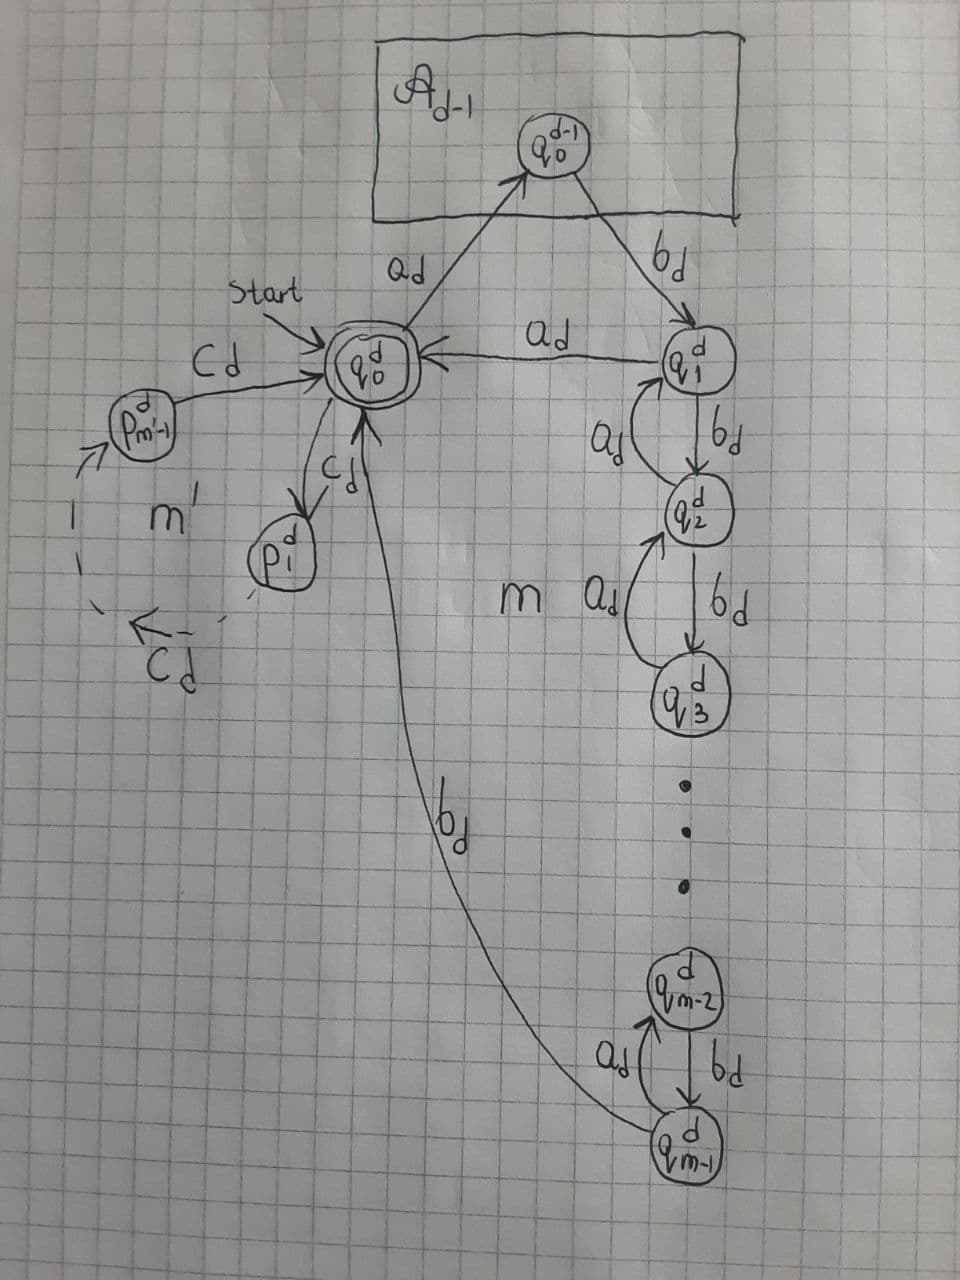 𝒜d-1
q0^d-1
ad
bd
Start
ad
Cd
q0^d
q1^d
pm'-1^d
ad
bd
Cd
m'
q2^d
p1^d
m
ad
bd
Cd
q3^d
bd
qm-2^d
ad
bd
qm-1^d